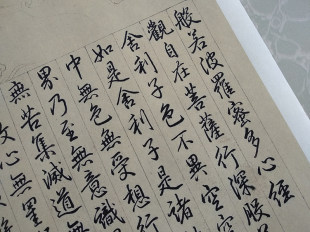 般若波羅蜜多心經
觀自在菩薩行深般
舍利子色不異空空
如是舍利子是諸
中無色無受想行
界乃至無意識
無苦集滅道無
心無罣